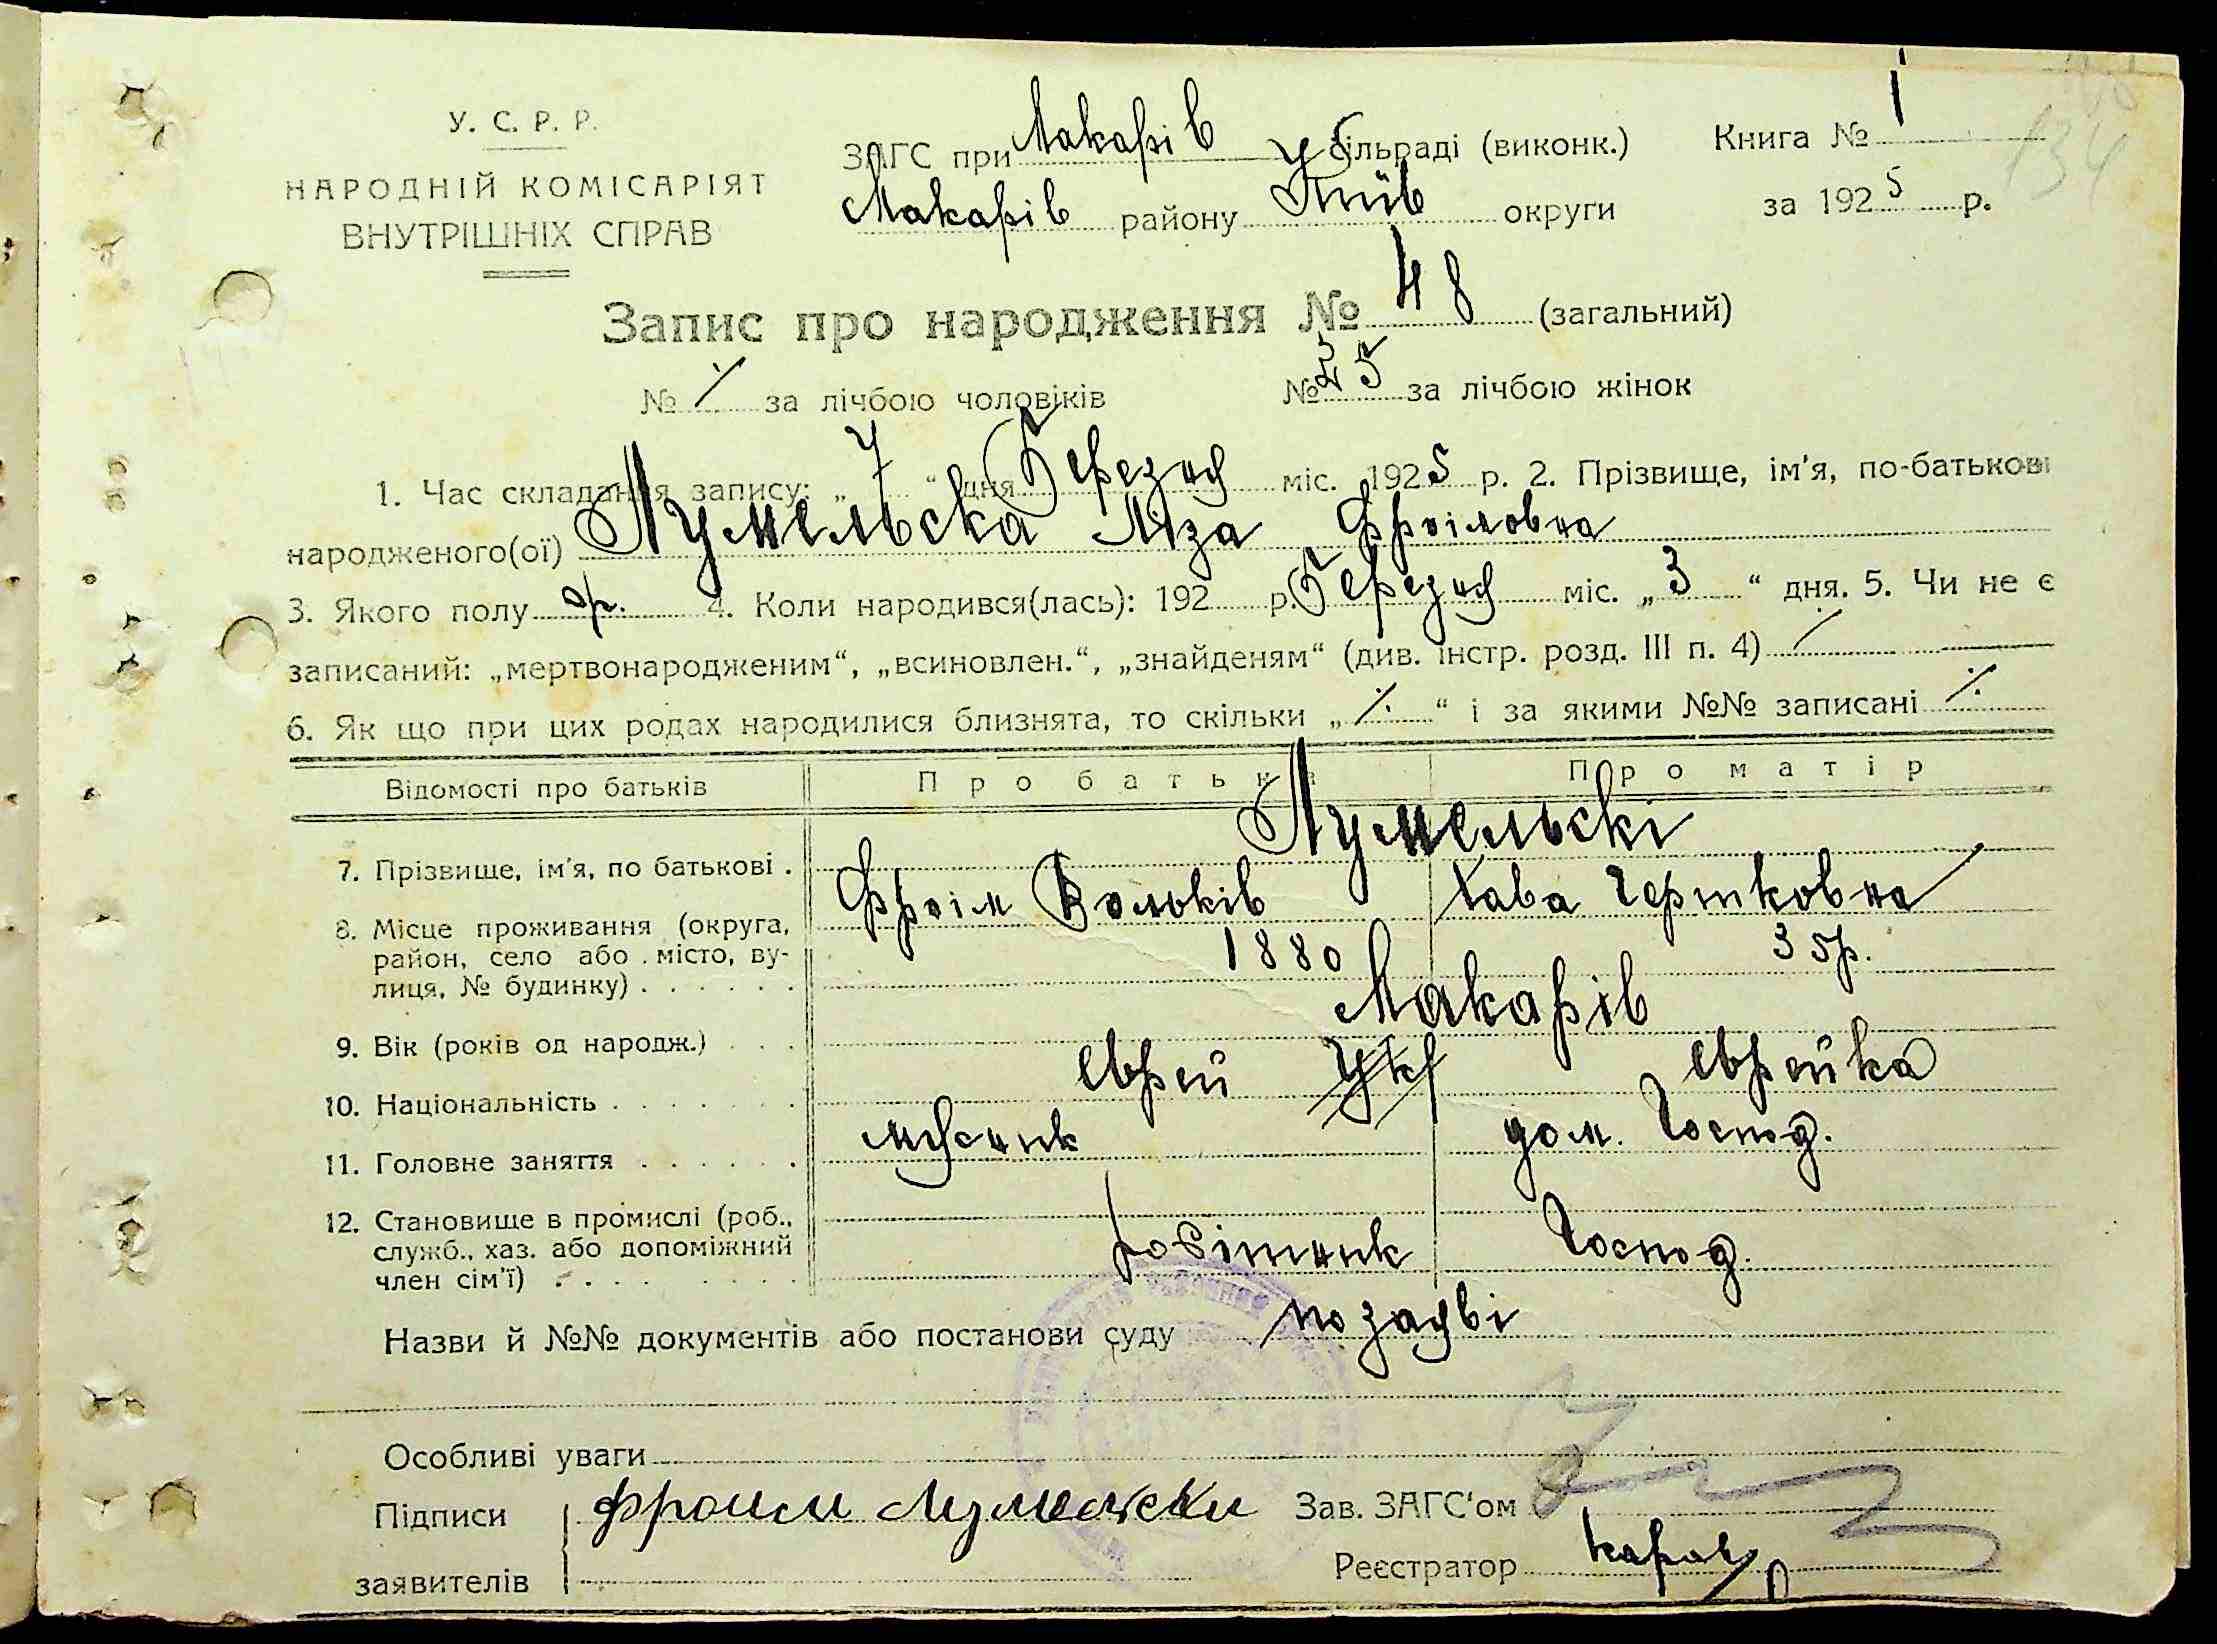 У. С. Р. Р.
НАРОДНІЙ КОМІСАРІЯТ
ВНУТРІШНІХ СПРАВ
ЗАГС при Макарів сільраді (виконк.)
Макарів району Київ округи
Книга № 1
за 1925 р.
134
Запис про народження № 48 (загальний)
№ ⁒ за лічбою чоловіків № 25 за лічбою жінок
1. Час складання запису: „ 7 “ дня Березня міс. 1925 р. 2. Прізвище, ім'я, по-батькові
народженого(ої) Лумельська Ліза Фроімовна
3. Якого полу 4. Коли народився(лась): 192 р. Березня міс. „ 3 “ дня. 5. Чи не є
записаний: „мертвонародженим“, „всиновлен.“, „знайденям“ (див. інстр. розд. III п. 4)
6. Як що при цих родах народилися близнята, то скільки „ ⁒ “ і за якими №№ записані ⁒
Відомості про батьків Про батька Про матір
Лумельскі
7. Прізвище, ім'я, по батькові . Фроім Вольків Хава Гершковна
8. Місце проживання (округа,
район, село або місто, ву-
лиця, № будинку) . . . . . .
1880 35р.
Макарів
9. Вік (років од народж.) . . .
10. Національність . . . . . . . Еврей Укр Еврейка
11. Головне заняття . . . . . . мясник дом. Господ.
12. Становище в промислі (роб.,
служб., хаз. або допоміжний
член сім'ї) . . . . . . . . .
робітник Господ.
Назви й №№ документів або постанови суду по заяві
Особливі уваги
Підписи
заявителів
Фроим Лумельски
Зав. ЗАГС'ом
Реєстратор